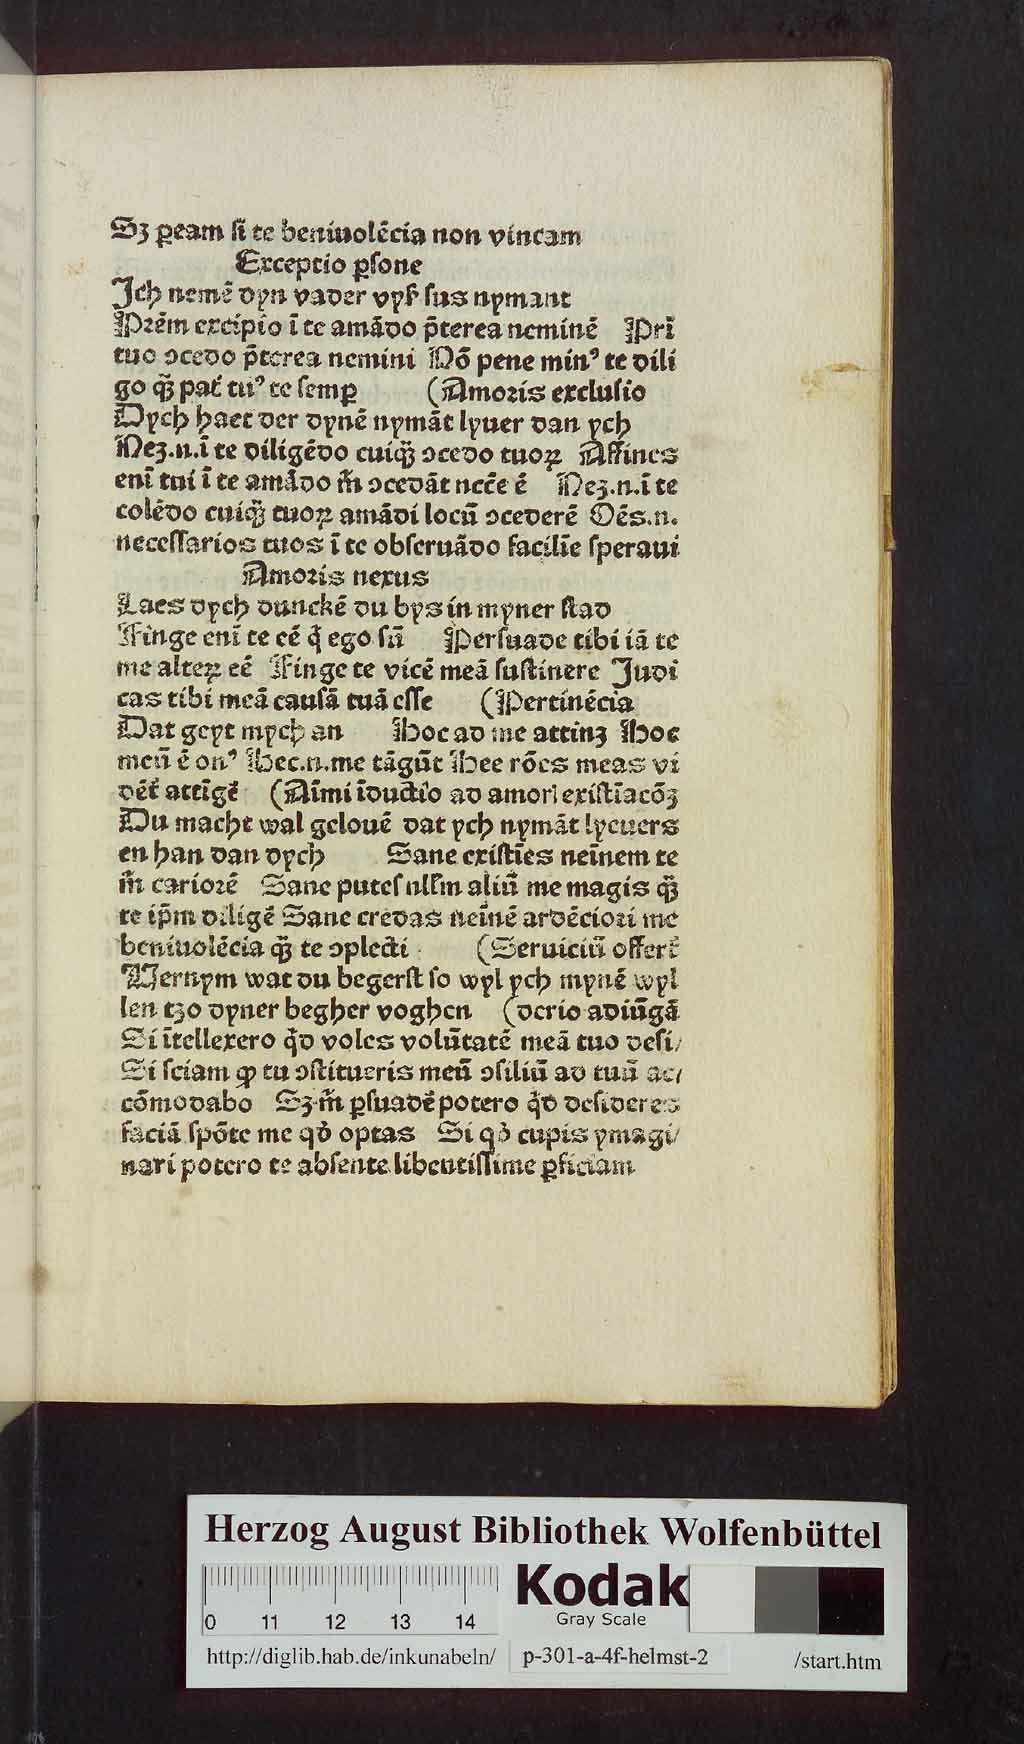 Sꝫ ꝑeam ſi te beniuolēcia non vincam
Exceptio ꝑſone
Ich nemē dyn vader vyſ ſus nymant
Prēm excipio ī te amādo p̄terea neminē Pri
tuo ꝯcedo p̄terea nemini Nō pene minꝰ te dili
go qͣ̄ pat̄ tuꝰ te ſemꝑ (Amoris excluſio
Dych haet der dynē nymāt lyuer dan ych
Neꝫ.n.ī te diligēdo cuiqͣ̄ ꝯcedo tuoꝝ Affines
enī tui ī te amādo m̄ ꝯcedāt necc̄e ē Neꝫ.n.ī te
colēdo cuiqͣ̄ tuoꝝ amādi locū ꝯcederē Oēs.n.
neceſſarios tuos ī te obſeruādo facilīe ſperaui
Amoris nexus
Laes dych dunckē du bys in myner ſtad
Finge enī te eē qͥ ego ſū Perſuade tibi iā te
me alteꝝ eē Finge te vicē meā ſuſtinere Judi
cas tibi meā cauſā tuā eſſe (Pertinēcia
Dat geyt mych an Hoc ad me attinꝫ Hoc
meū ē onꝰ Hec.n.me tāgūt Hee rōes meas vi
dēt̄ attīgē (Aīmi īductio ad amorē exiſtīacōꝫ
Du macht wal gelouē dat ych nymāt lyeuers
en han dan dych Sane exiſtīes neīnem te
m̄ cariorē Sane puteſ nllm̄ aliū me magis qͣ̄
te ip̄m diligē Sane credas neīnē ardēciori me
beniuolēcia qͣ̄ te ꝯplecti (Seruiciū offert̄
Vernym wat du begerſt ſo wyl ych mynē wyl
len tzo dyner begher voghen (derio adiūgā
Si ītellexero qd̄ voles volūtatē meā tuo deſi/
Si ſciam ꝙ tu ꝯſtitueris meū ꝯſiliū ad tuū ac/
cōmodabo Sꝫ m̄ ꝑſuadē potero qd̄ deſideres
faciā ſpōte me qd̄ optas Si qd̄ cupis ymagi/
nari potero te abſente libentiſſime ꝑficiam
Herzog August Bibliothek Wolfenbüttel
Kodak
Gray Scale
0 11 12 13 14
http://diglib.hab.de/inkunabeln/ p-301-a-4f-helmst-2 /start.htm